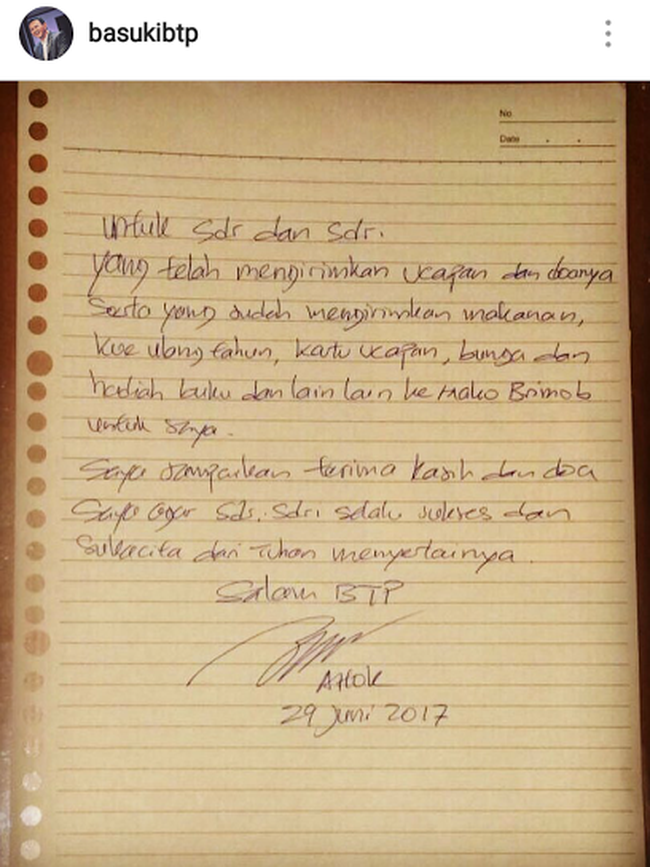 basukibtp
No
Date . .
untuk Sdr dan Sdri.
yang telah mengirimkan ucapan dan doanya
Serta yang sudah mengirimkan makanan,
kue ulang tahun, kartu ucapan, bunga dan
hadiah buku dan lain lain ke Mako Brimob
untuk saya.
Saya sampaikan terima kasih dan doa
Saya agar Sdr. Sdri selalu sukses dan
Sukacita dari Tuhan menyertainya.
Salam BTP
AHOK
29 Juni 2017